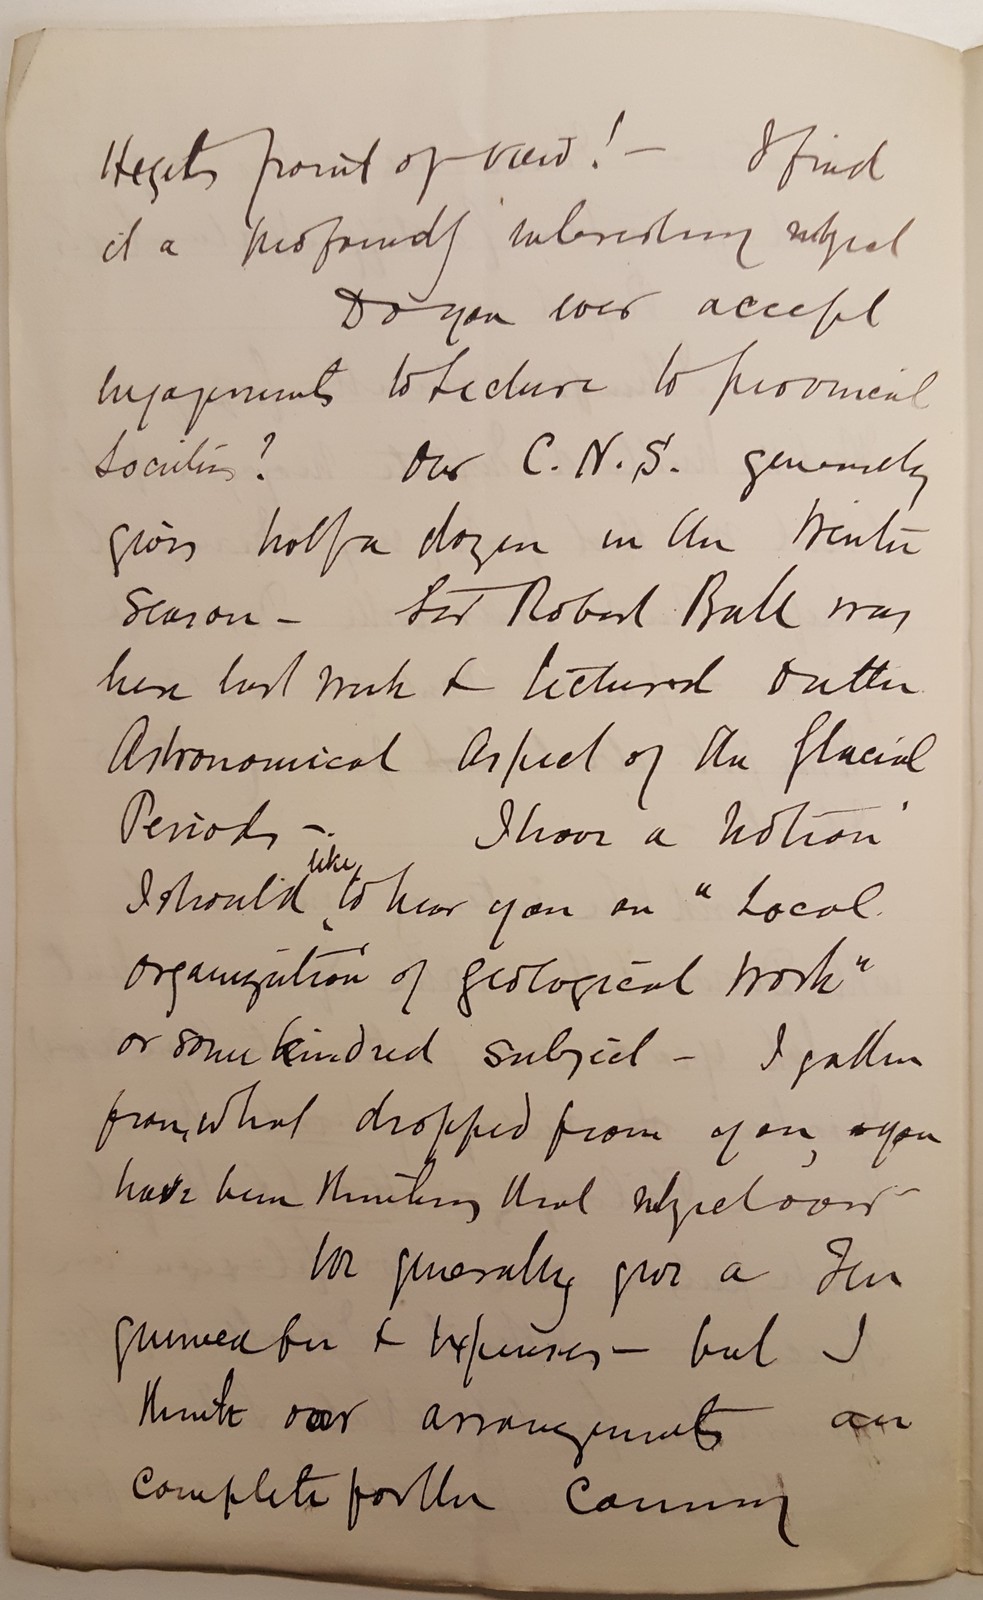 Hegel's point of view! — I find
it a profoundly interesting subject
Do you ever accept
engagements to Lecture to provincial
Societies? Our C.N.S. generally
gives half a dozen in the Winter
Season — Sir Robert Ball was
here last week & lectured on the
Astronomical Aspect of the Glacial
Periods —. I have a notion
I should like to hear you on "Local
organization of geological work"
or some kindred subject — I gather
from what dropped from you, you
have been thinking that subject over
We generally give a Ten
guinea fee & expenses — but I
think our arrangements are
complete for the coming